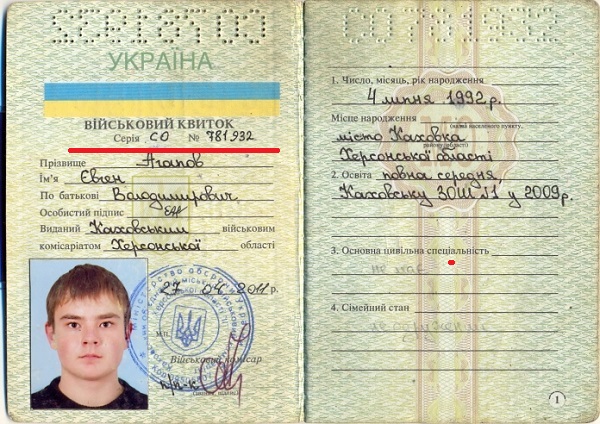 УКРАЇНА
ВІЙСЬКОВИЙ КВИТОК
Серія СО № 781932
Прізвище Агапов
Ім'я Євген
По батькові Володимирович
Особистий підпис
Виданий Каховським військовим
комісаріатом Херсонської області
27 04 2011
М.П.
Військовий комісар
п/п-к
1. Число, місяць, рік народження
4 липня 1992 р.
Місце народження
місто Каховка
Херсонської області
2. Освіта повна середня
Каховську ЗОШ №1 у 2009 р.
3. Основна цивільна спеціальність
4. Сімейний стан
1